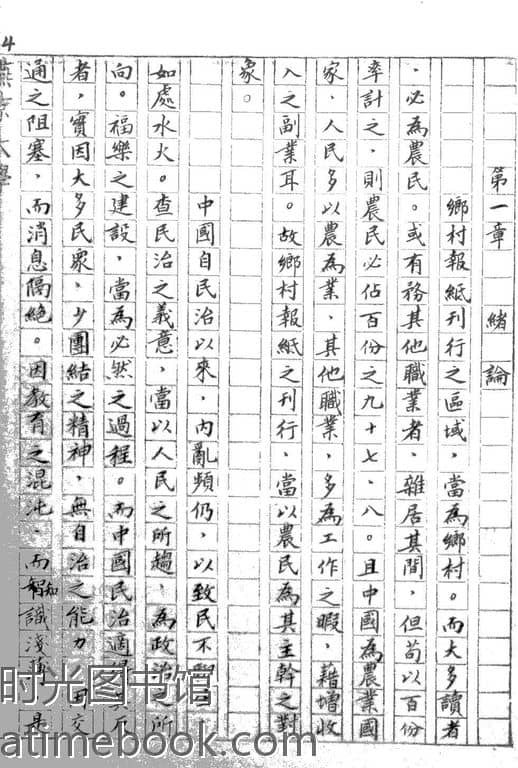 第一章　緒論
鄉村報紙刊行之區域，當為鄉村。而大多讀者
，必為農民。或有務其他職業者，雜居其間，但苟以百份
率計之，則農民必佔百份之九十七、八。且中國為農業國
家，人民多以農為業，其他職業，多為工作之暇，藉增收
入之副業耳。故鄉村報紙之刊行，當以農民為其主幹之對
象。
中國自民治以來，內亂頻仍，以致民不
如處水火。查民治之義意，當以人民之所趨，為政治之所
向。福樂之建設，當為必然之過程。而中國民治適
者，實因大多民衆，少團結之精神，無自治之能力，因交
通之阻塞，而消息隔絕。因教育之混沌，而知識淺薄，是
4
时光图书馆
atimebook.com